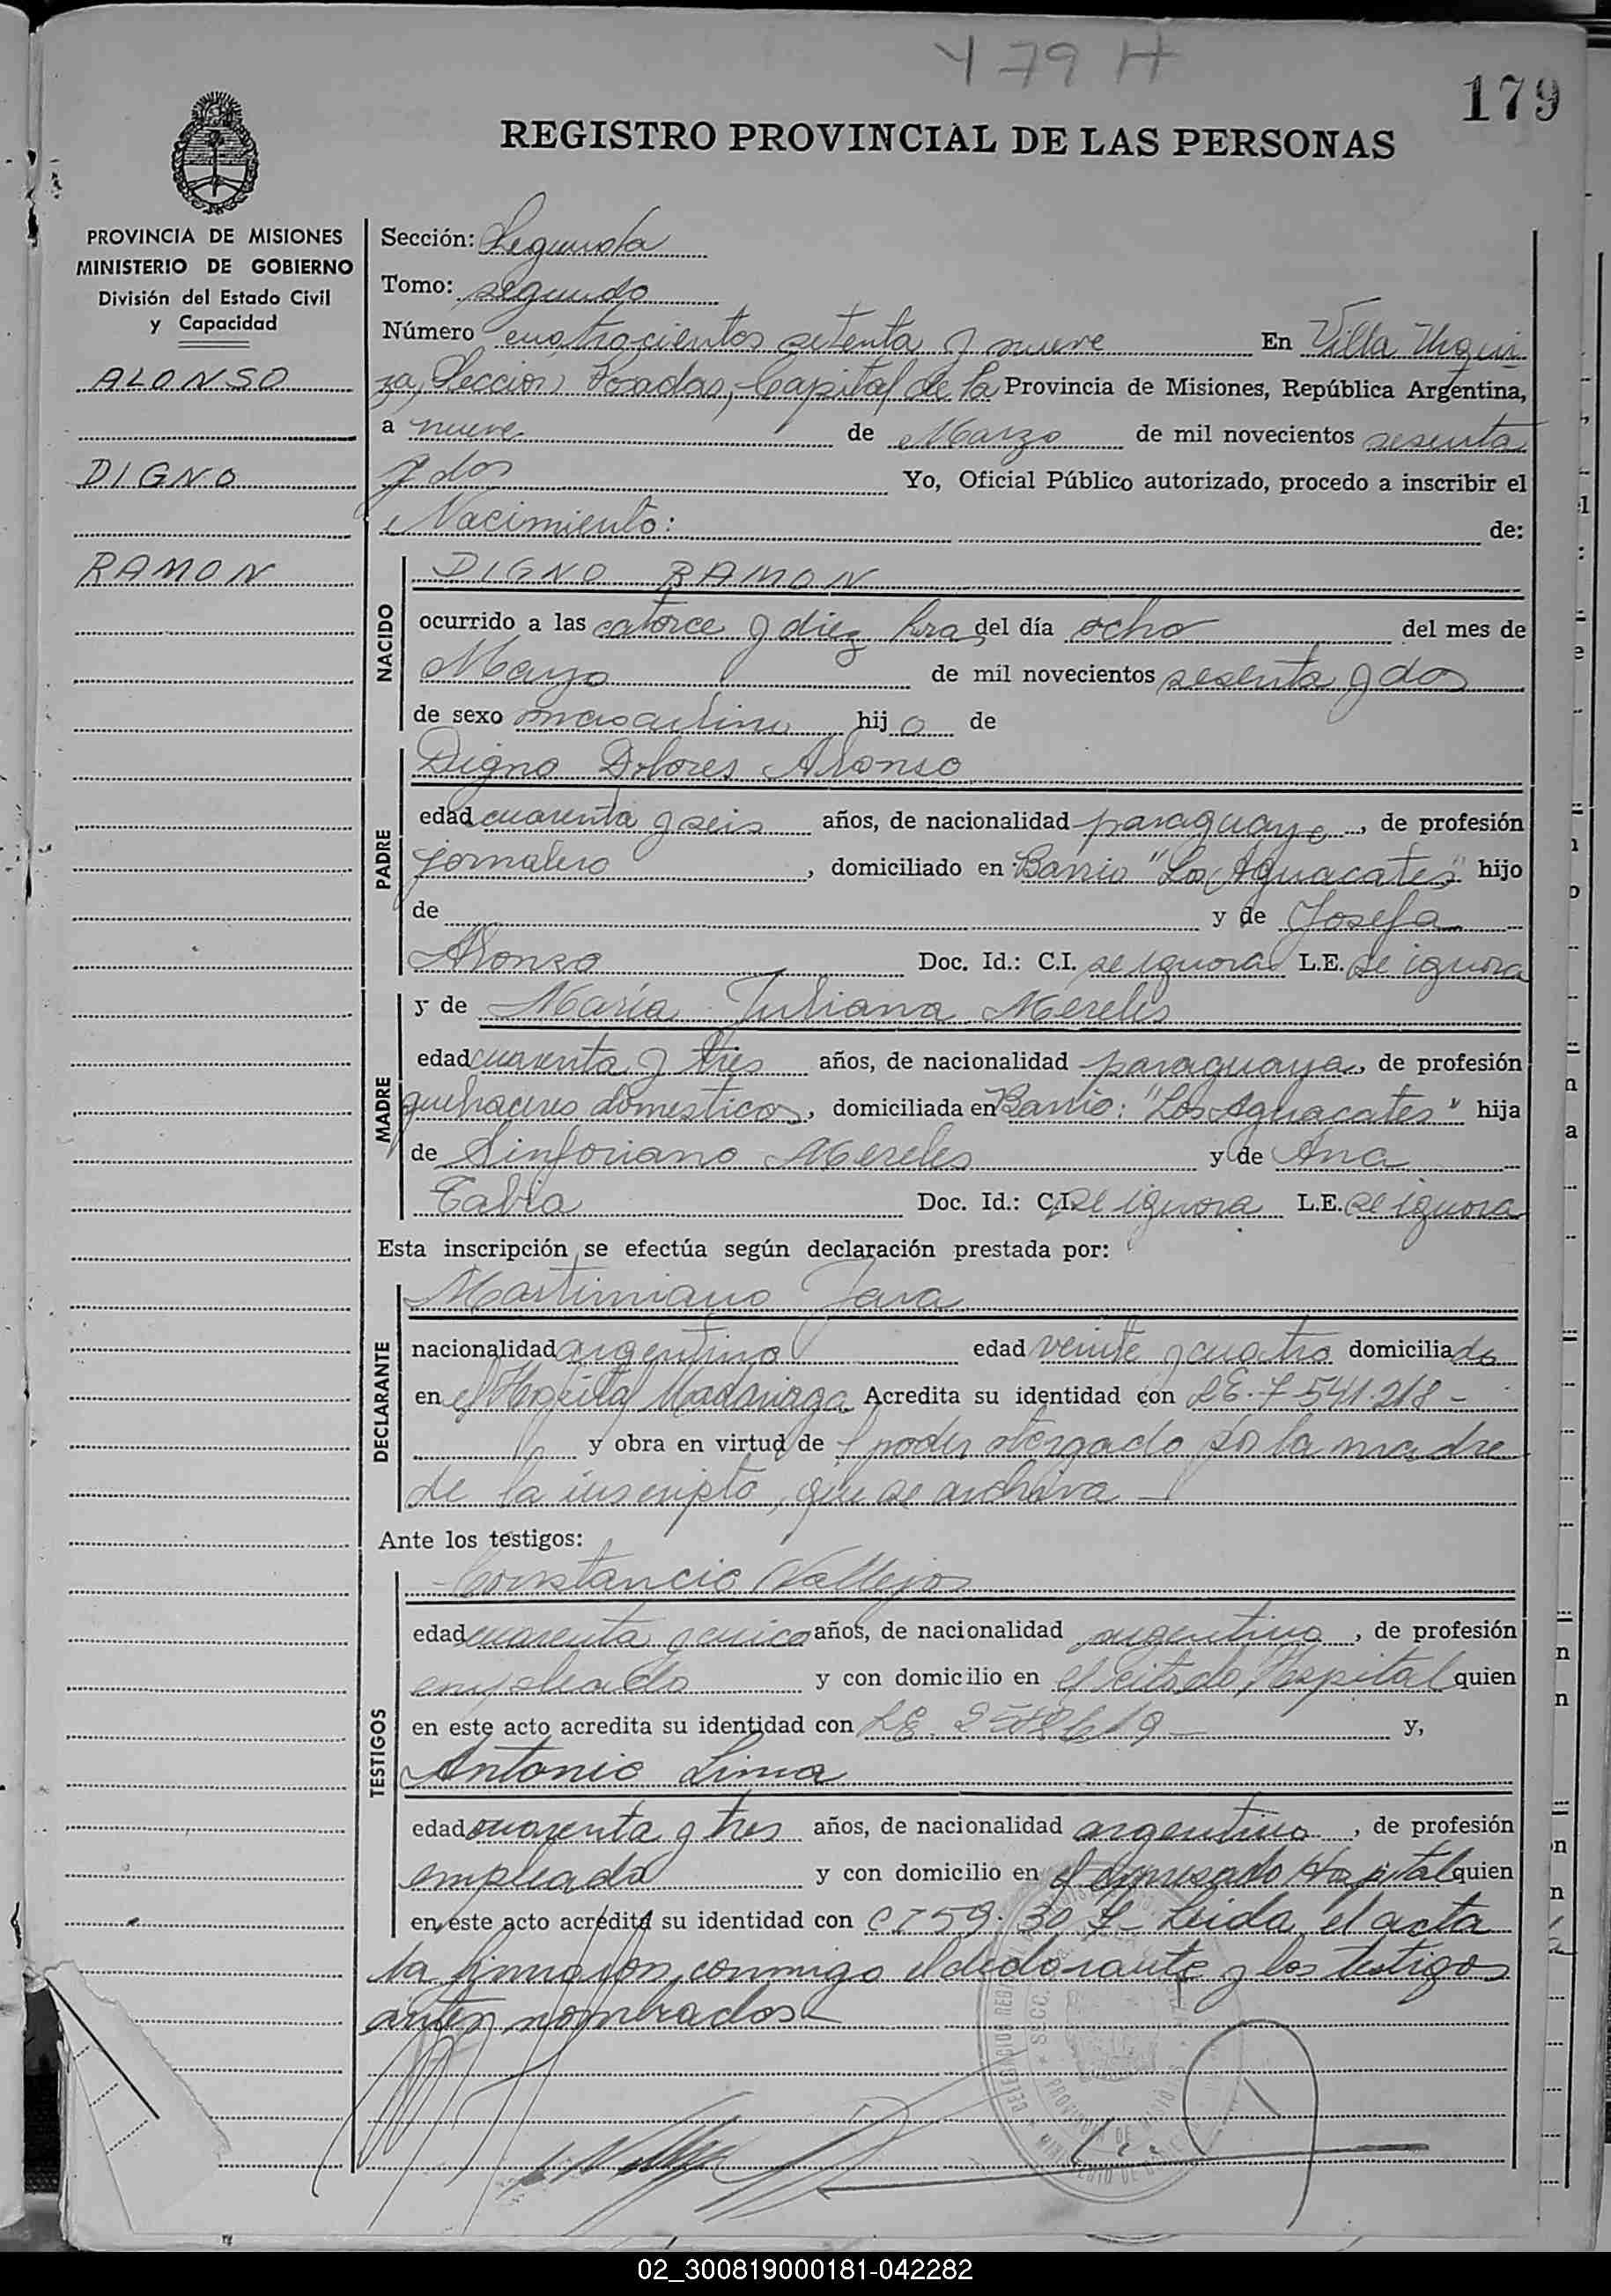 479 H
179
REGISTRO PROVINCIAL DE LAS PERSONAS
PROVINCIA DE MISIONES
MINISTERIO DE GOBIERNO
División del Estado Civil
y Capacidad
ALONSO
DIGNO
RAMON
Sección: Segunda
Tomo: segundo
Número cuatrocientos setenta y nueve En Villa Urqui
za, Seccion Posadas, Capital de la Provincia de Misiones, República Argentina,
a nueve de Marzo de mil novecientos sesenta
y dos Yo, Oficial Público autorizado, procedo a inscribir el
Nacimiento: de:
NACIDO
DIGNO RAMON
ocurrido a las catorce y diez hras del día ocho del mes de
Marzo de mil novecientos sesenta y dos
de sexo masculino hijo de
PADRE
Digno Dolores Alonso
edad cuarenta y seis años, de nacionalidad paraguayo, de profesión
jornalero, domiciliado en Barrio "Los Aguacates" hijo
de y de Josefa
Alonso Doc. Id.: C.I. se ignora L.E. se ignora
MADRE
y de María Juliana Mereles
edad cuarenta y tres años, de nacionalidad paraguaya, de profesión
quehaceres domesticos, domiciliada en Barrio: "Los Aguacates" hija
de Sinforiano Mereles y de Ana
Doc. Id.: C.I. se ignora L.E. se ignora
Esta inscripción se efectúa según declaración prestada por:
DECLARANTE
Martimiano Jara
nacionalidad argentino edad veinte y cuatro domiciliado
en el Hospital Madariaga Acredita su identidad con LE. 7 541.218 -
y obra en virtud de poder otorgado por la madre
de la inscripto, que se archiva -
Ante los testigos:
TESTIGOS
Constancio Vallejos
edad cuarenta y cinco años, de nacionalidad argentino, de profesión
empleado y con domicilio en el citado Hospital quien
en este acto acredita su identidad con LE. y,
Antonio Lima
edad cuarenta y tres años, de nacionalidad argentino, de profesión
empleado y con domicilio en el expresado Hospital quien
en este acto acredita su identidad con CI 59. 307- Leida el acta
la firmaron conmigo el declarante y los testigos
antes nombrados-
02_300819000181-042282